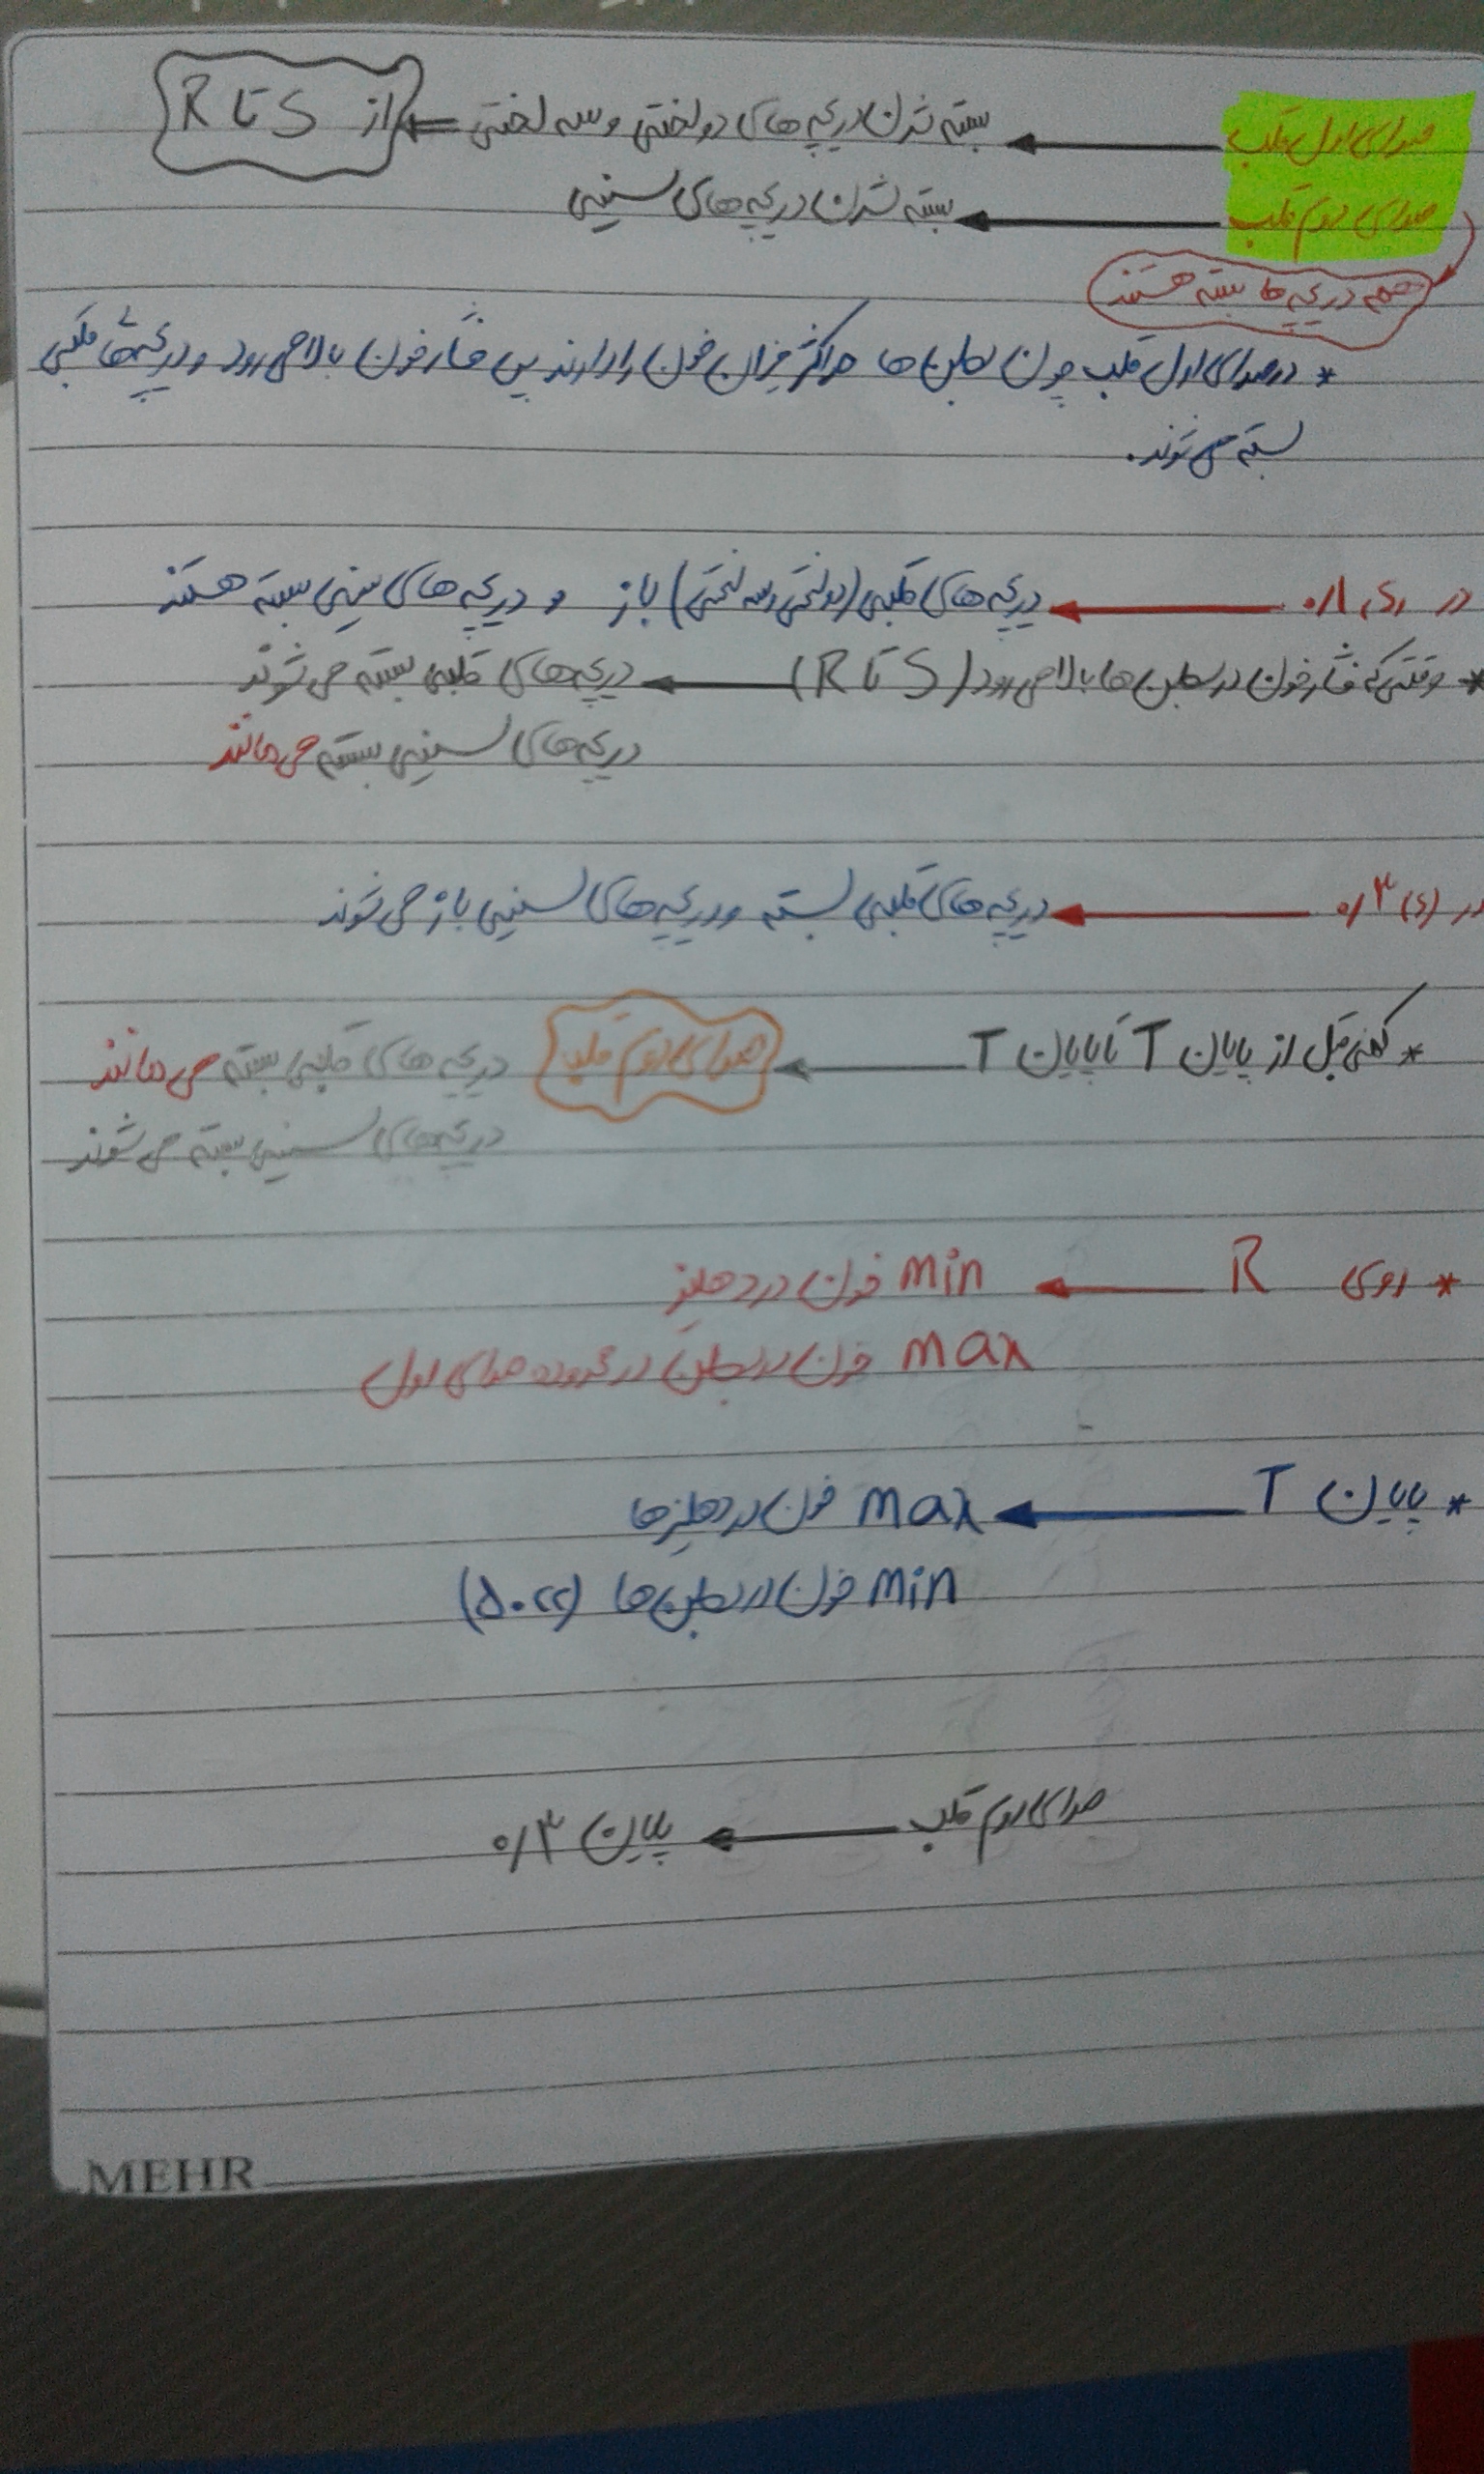 صدای اول قلب ← بسته شدن دریچه های دولختی و سه لختی ← از S تا R
صدای دوم قلب ← بسته شدن دریچه های سینی
همه دریچه ها بسته هستند
* در صدای اول قلب چون بطن ها حداکثر میزان خون را دارند پس فشار خون بالا می رود و دریچه های قلبی
بسته می شوند.
در ری ۰/۱ ← دریچه های قلبی (دولختی و سه لختی) باز و دریچه های سینی بسته هستند
* وقتی که فشار خون در بطن ها بالا می رود (S تا R) ← دریچه های قلبی بسته می شوند
دریچه های سینی بسته می مانند
در (ی) ۰/۳ ← دریچه های قلبی بسته و دریچه های سینی باز می شوند
* کمی قبل از پایان T تا پایان T ← صدای دوم قلب دریچه های قلبی بسته می مانند
دریچه های سینی بسته می شوند
* روی R ← min خون در دهلیز
max خون در بطن در محدوده صدای اول
* پایان T ← max خون در دهلیزها
min خون در بطن ها (۵۰cc)
صدای دوم قلب ← پایان ۰/۳
MEHR